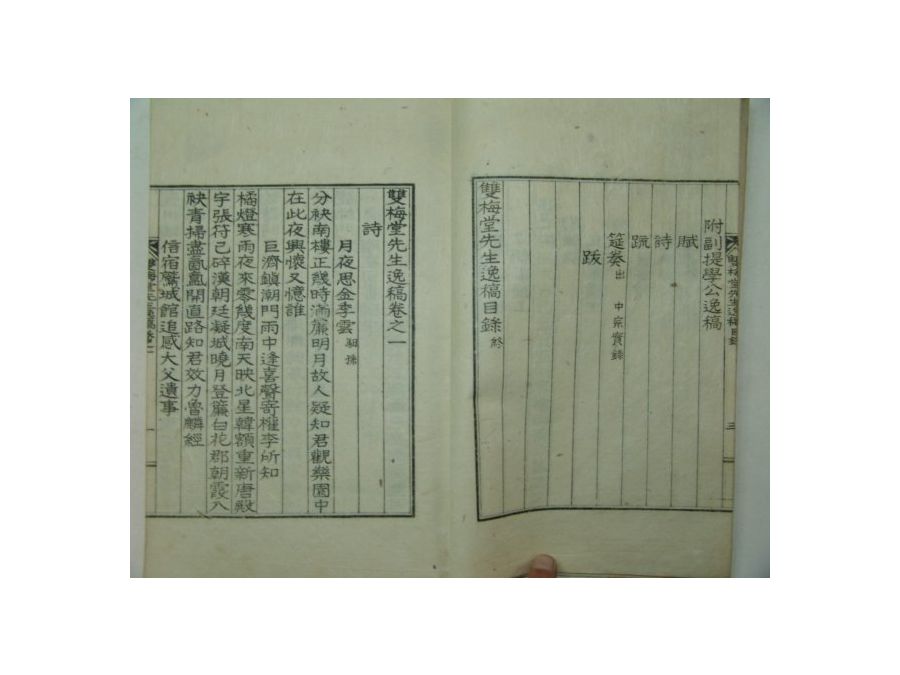 附副提學公逸稿
賦
詩
疏
筵奏出中宗實錄
跋
雙梅堂先生逸稿目錄終
雙梅堂先生逸稿卷之一
詩
月夜思金李雲
分袂南樓正幾時滿簾明月故人疑知君觀樂園中
在此夜興懷又憶誰
巨濟鎭潮門雨中逢喜聲寄權李所知
橘燈寒雨夜來零幾度南天映北星韓額重新唐殿
字張符已碎漢朝廷凝城曉月登簾白花郡朝霞八
袂青掃盡氤氳開直路知君效力魯麟經
信宿鷲城館追感大父遺事